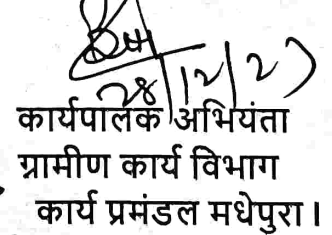 28/12/23
कार्यपालक अभियंता
ग्रामीण कार्य विभाग
कार्य प्रमंडल मधेपुरा।